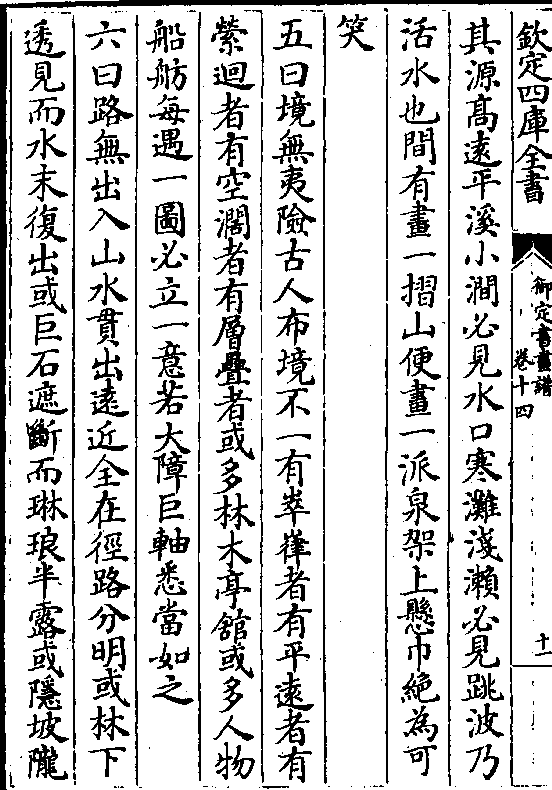 欽定四庫全書
御定書畫譜
卷十四
十一
其源髙逺平溪小澗必見水口寒灘淺瀨必見跳波乃
活水也間有畫一摺山便畫一派泉架上懸巾絶為可
笑
五曰境無夷險古人布境不一有崒嵂者有平逺者有
縈迴者有空濶者有層疊者或多林木亭舘或多人物
船舫每遇一圖必立一意若大障巨軸悉當如之
六曰路無出入山水貫出逺近全在徑路分明或林下
透見而水末復出或巨石遮斷而琳琅半露或隱坡隴